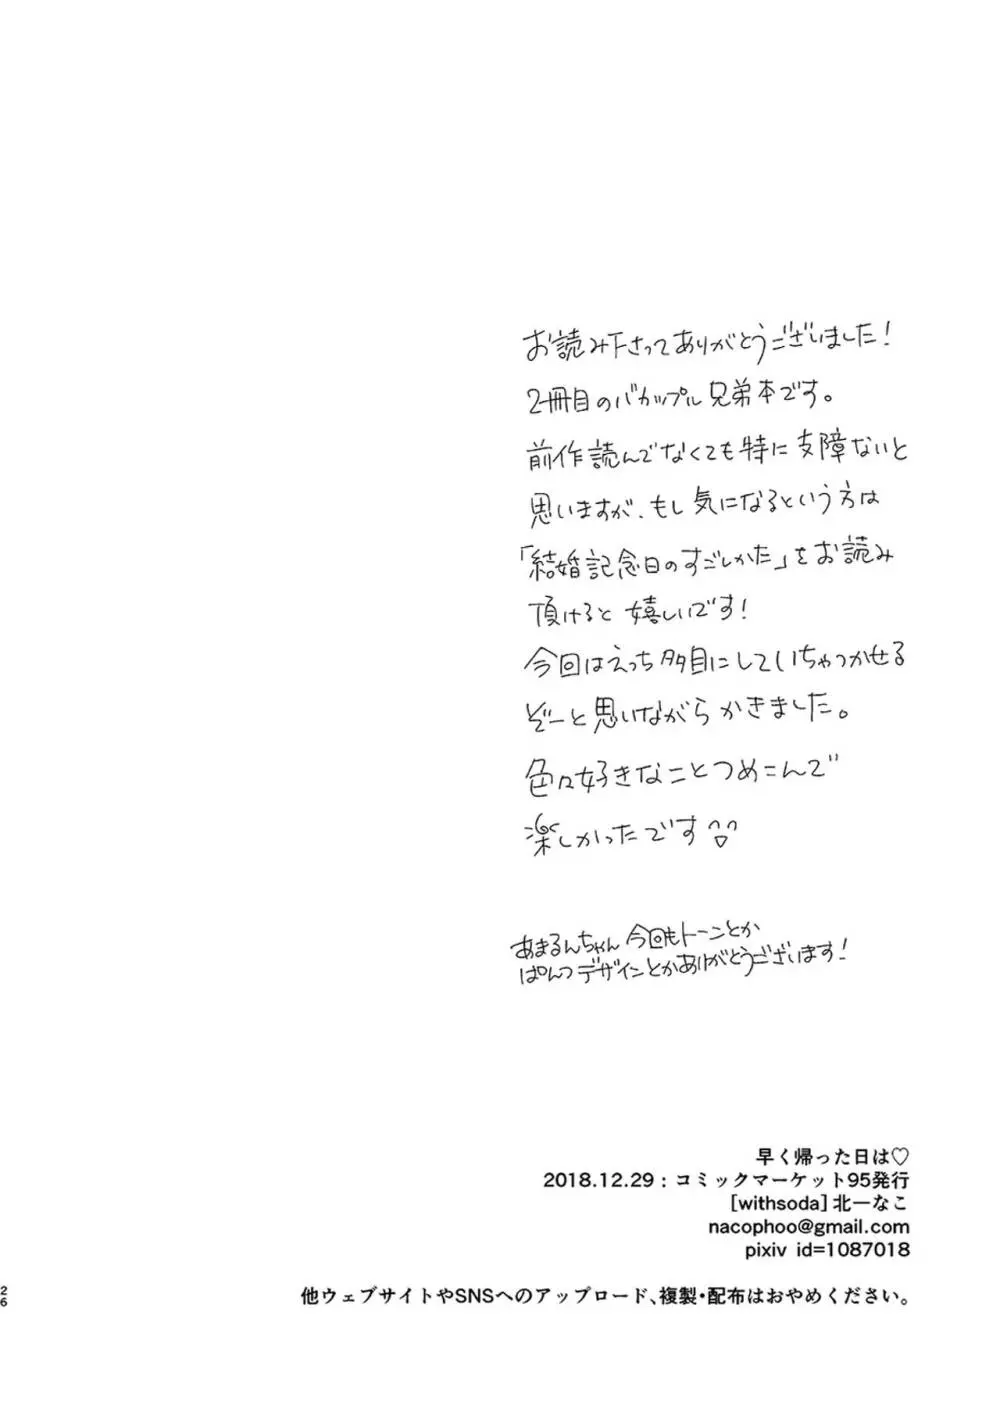 お読み下さってありがとうございました!
2冊目のバカップル兄弟本です。
前作読んでなくても特に支障ないと
思いますが、もし気になるという方は
「結婚記念日のすごしかた」をお読み
頂けると嬉しいです!
今回はえっち多目にしていちゃつかせる
ぞーと思いながらかきました。
色々好きなことつめこんで
楽しかったです
あまるんちゃん今回もトーンとか
ぱんつデザインとかありがとうございます!
早く帰った日は♡
2018.12.29:コミックマーケット95発行
[withsoda]北一なこ
nacophoo@gmail.com
pixiv id=1087018
26
他ウェブサイトやSNSへのアップロード、複製・配布はおやめください。